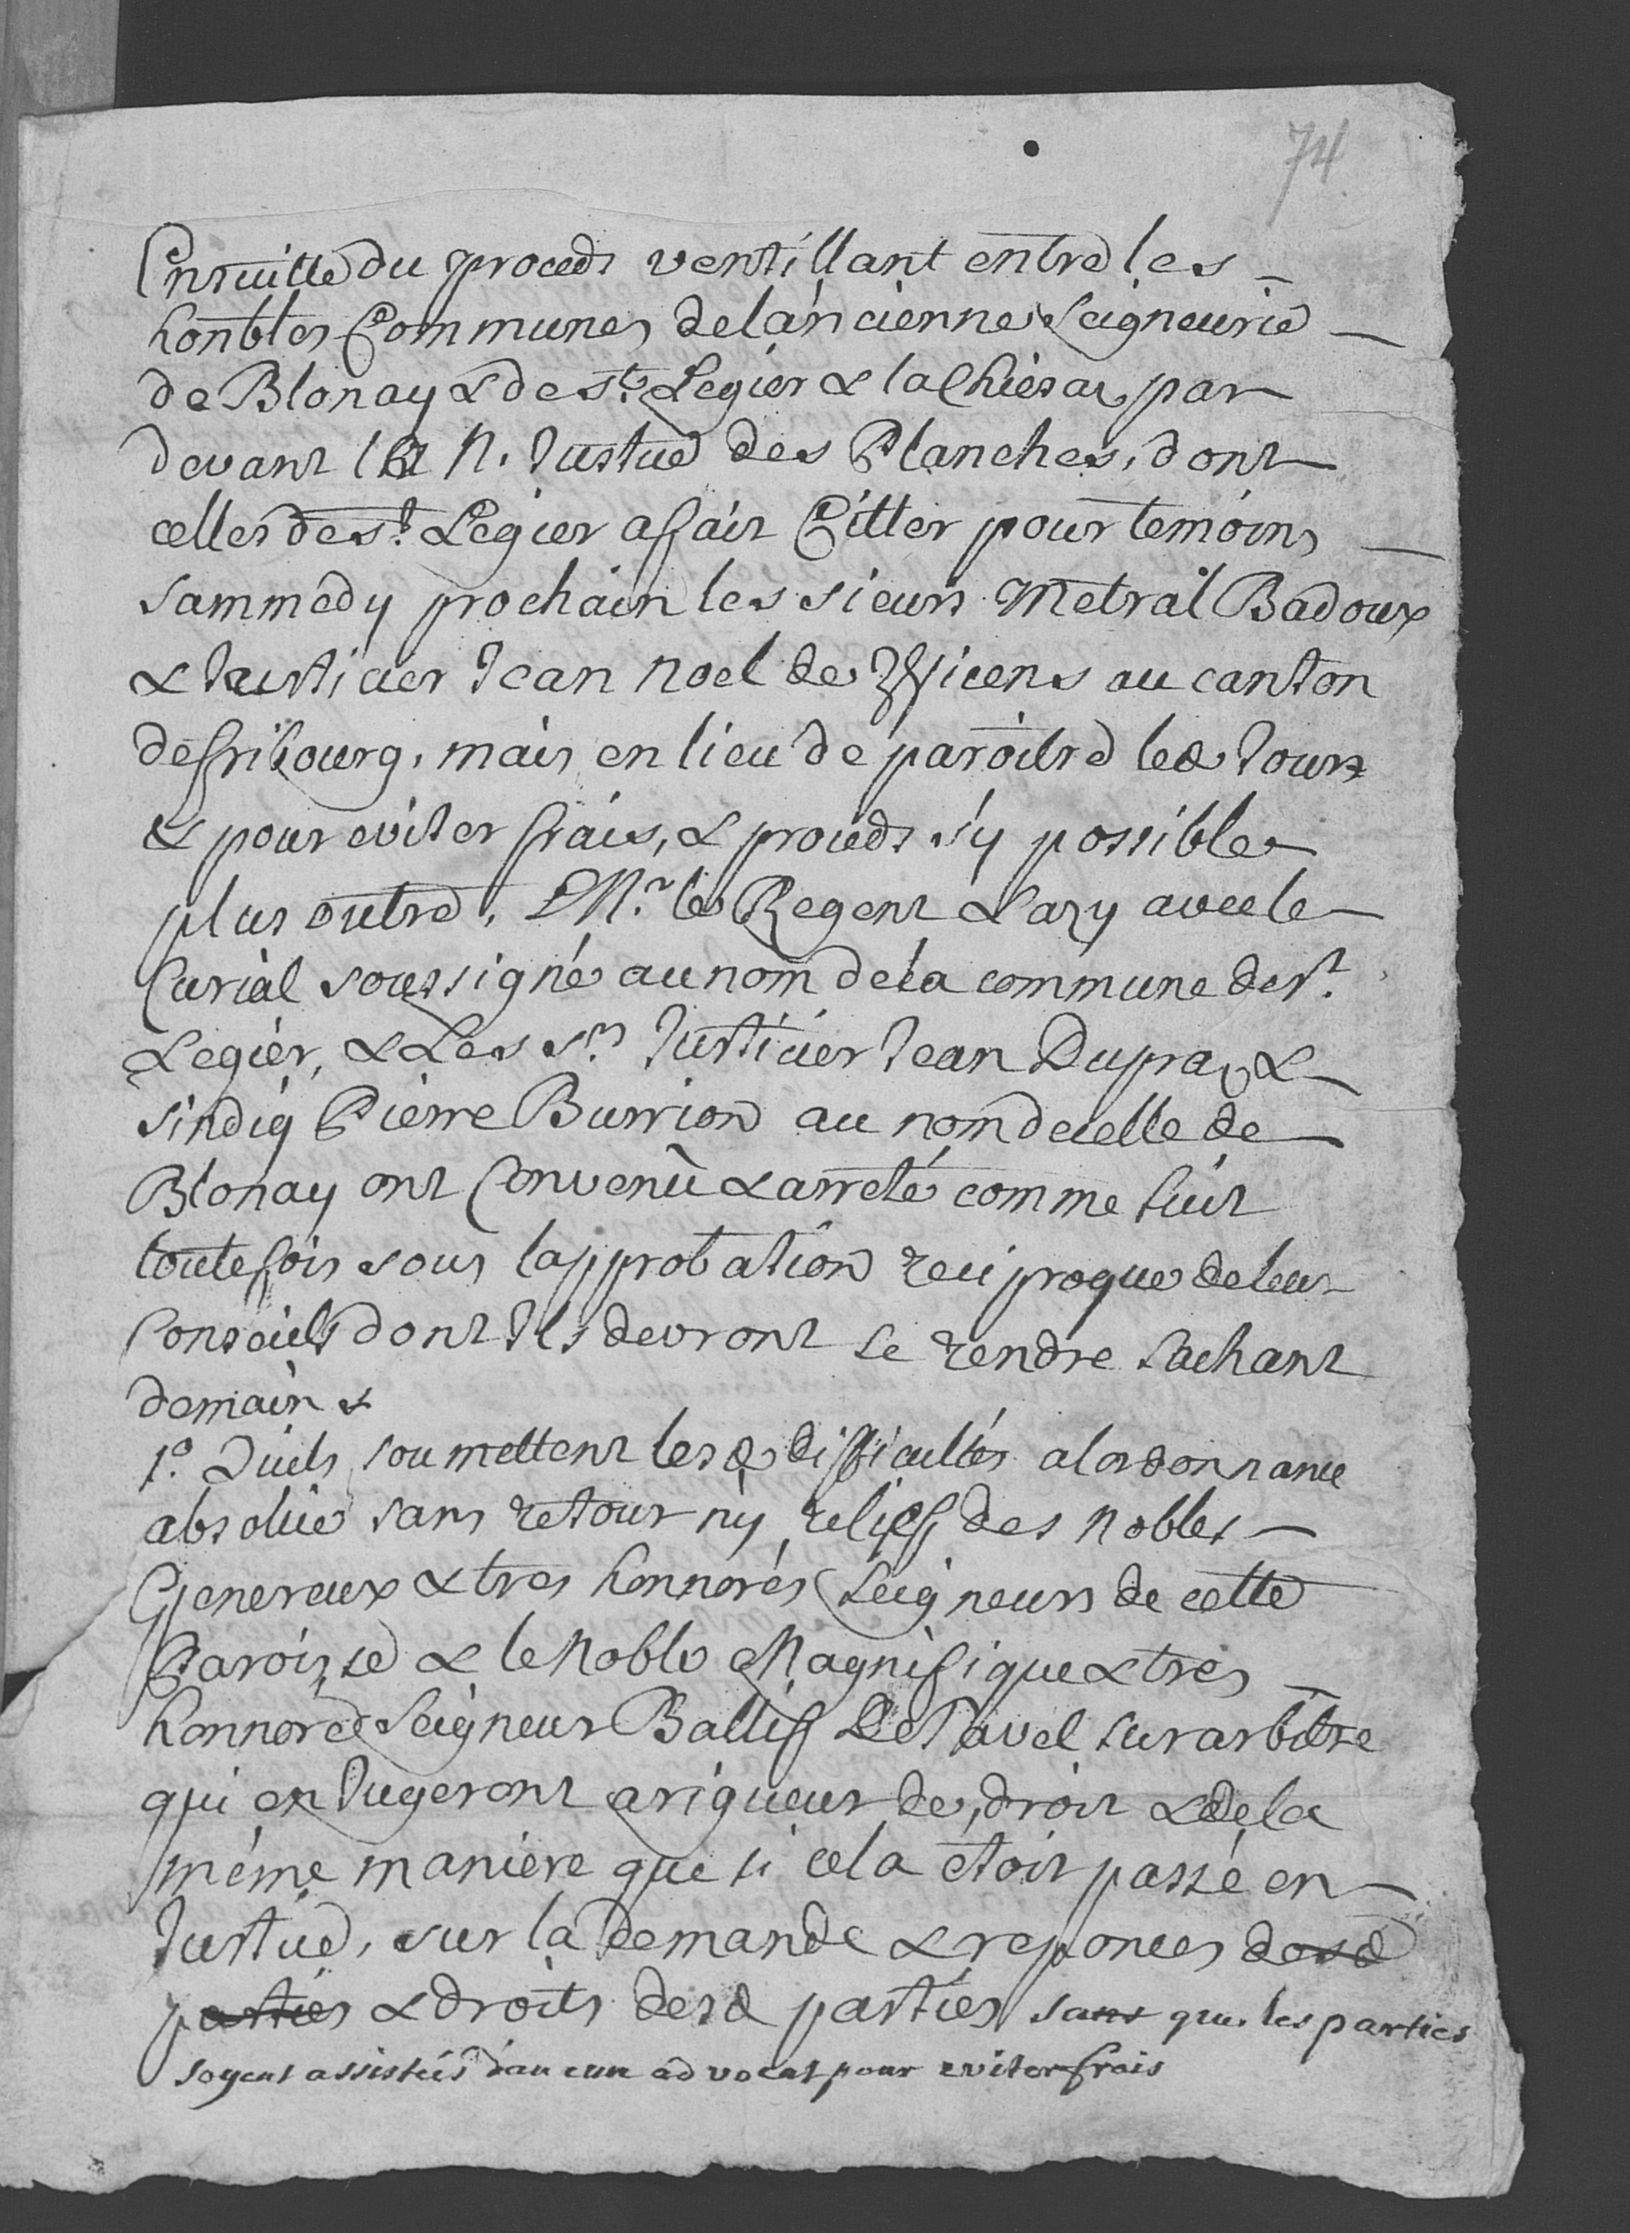 74
Ensuitte du procedz ventillant entre les
honbles Communes de l'ancienne Seigneurie
de Blonay & de st. Legier & la Chiesaz par
devant la N. Justice des Planches, dont
celles de st. Legier a fait Citter pour temoins
sammedy prochain les sieurs Metral Badoux
& Justicier Jean Noel de au canton
de fribourg, mais en lieu de paroitre led. Jours
& pour eviter frais, & procedz s'y possible
plus outre, Mr. le Regent avec le
Curial soussigné au nom de la commune de st.
Legier, & Les srs Justicier Jean Dupraz &
sindiq Pierre Burrion au nom de celle de
Blonay ont Convenû & arreté comme suit
toutefois sous lapprobation reciproque de leur
Conseils dont Ils devront se rendre sachant
demain &
1o. Quils soumettent lesd. difficultés a lordonnance
absolüe sans retour ny relieff des Nobles
Genereux & tres honnorés Seigneurs de cette
Paroisse & le Noble Magnifique & tres
honnoré Seigneur Ballif De Tavel surarbitre
qui en Jugeront a rigueur de droit & de la
même maniere que si cela etoit passé en
Justice, sur la Demande & reponces desd.
parties & droits desd. parties sans que les parties
soyent assistées d'aucun advocat pour eviter frais